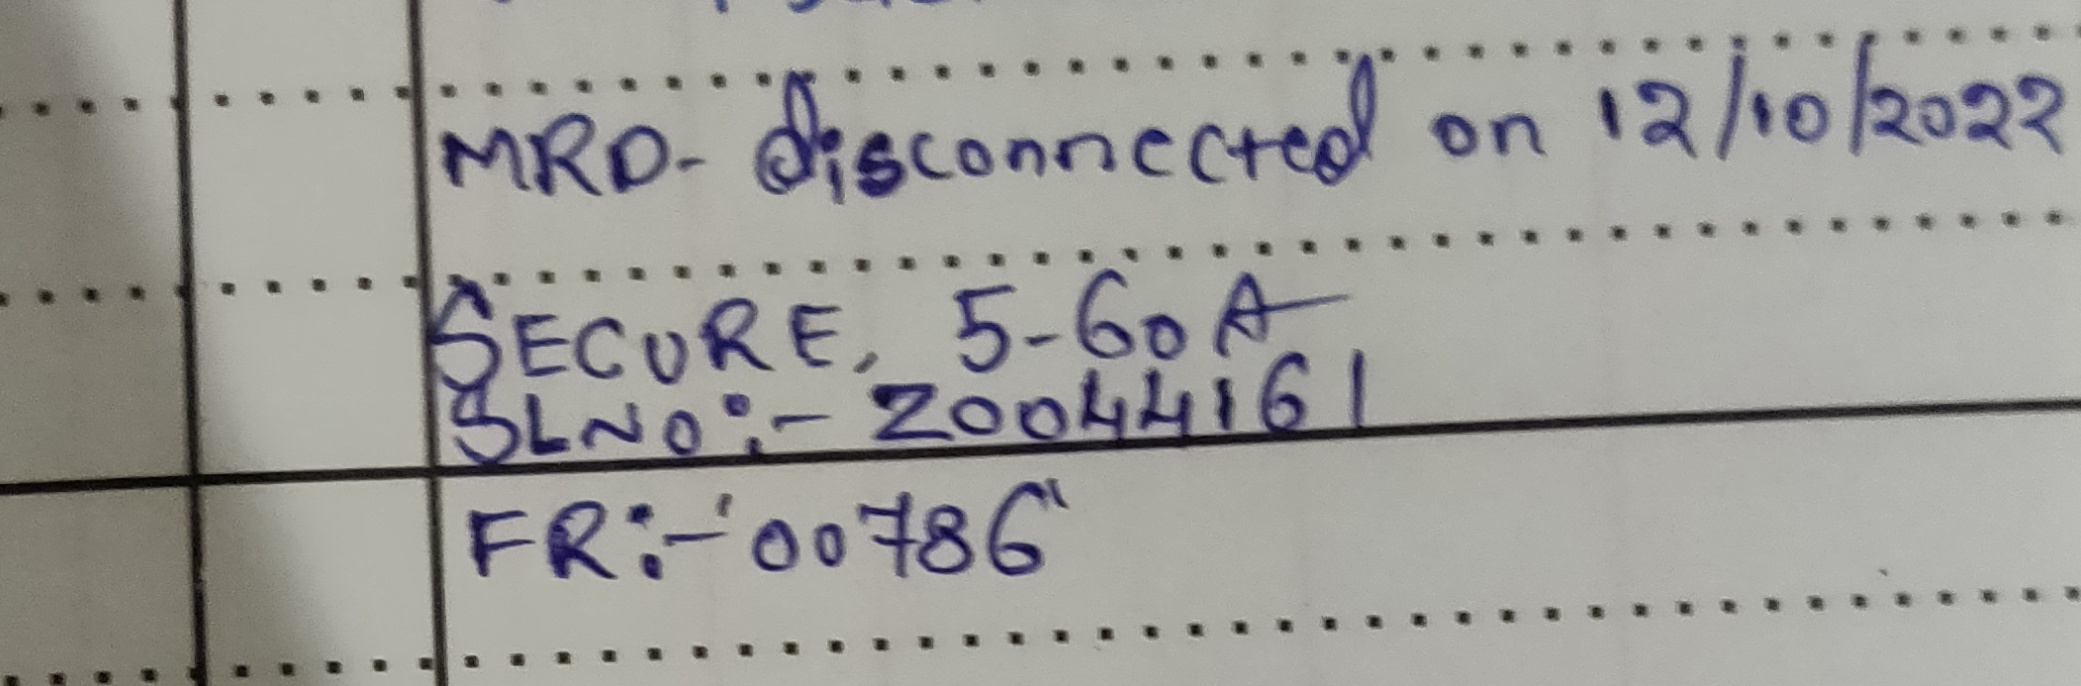 MRD- disconnected on 12/10/2022
SECURE, 5-60A
SLNO:- 20044161
FR:- '00786'